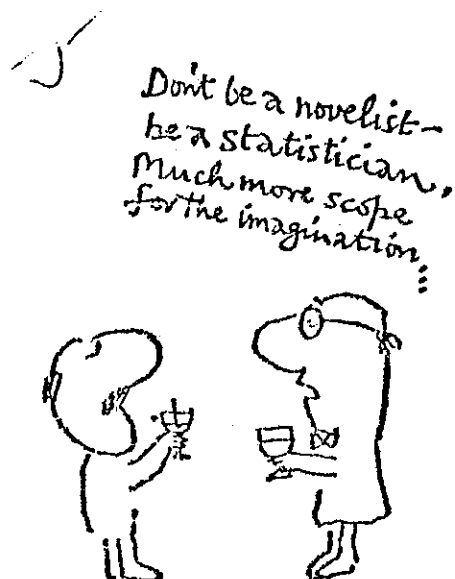 Don't be a novelist–
be a statistician,
Much more scope
for the imagination...